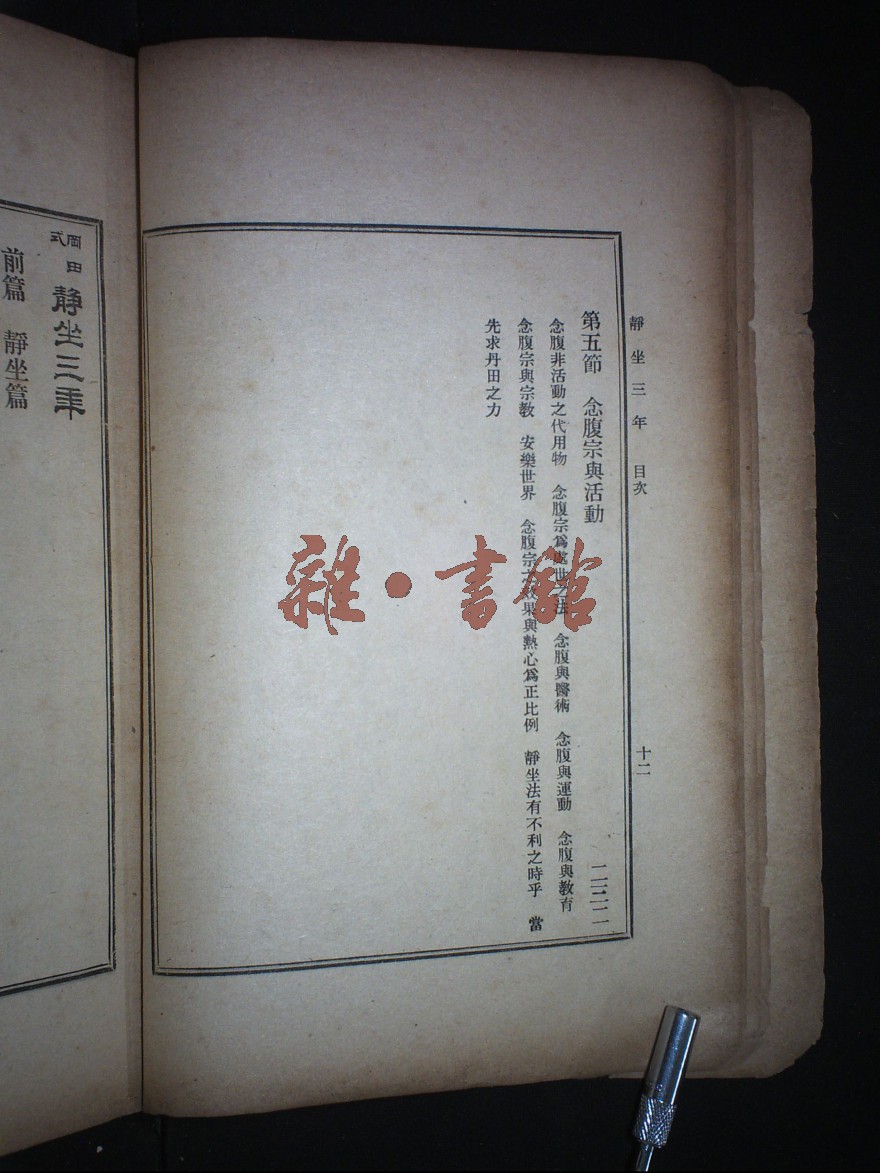 靜坐三年 目次 十二
第五節 念腹宗與活動
念腹非活動之代用物 念腹宗爲處世之法 念腹與醫術 念腹與運動 念腹與教育
念腹宗與宗教 安樂世界 念腹宗之效果與熱心爲正比例 靜坐法有不利之時乎 當
先求丹田之力
岡田式 靜坐三年
前篇 靜坐篇
雜·書館